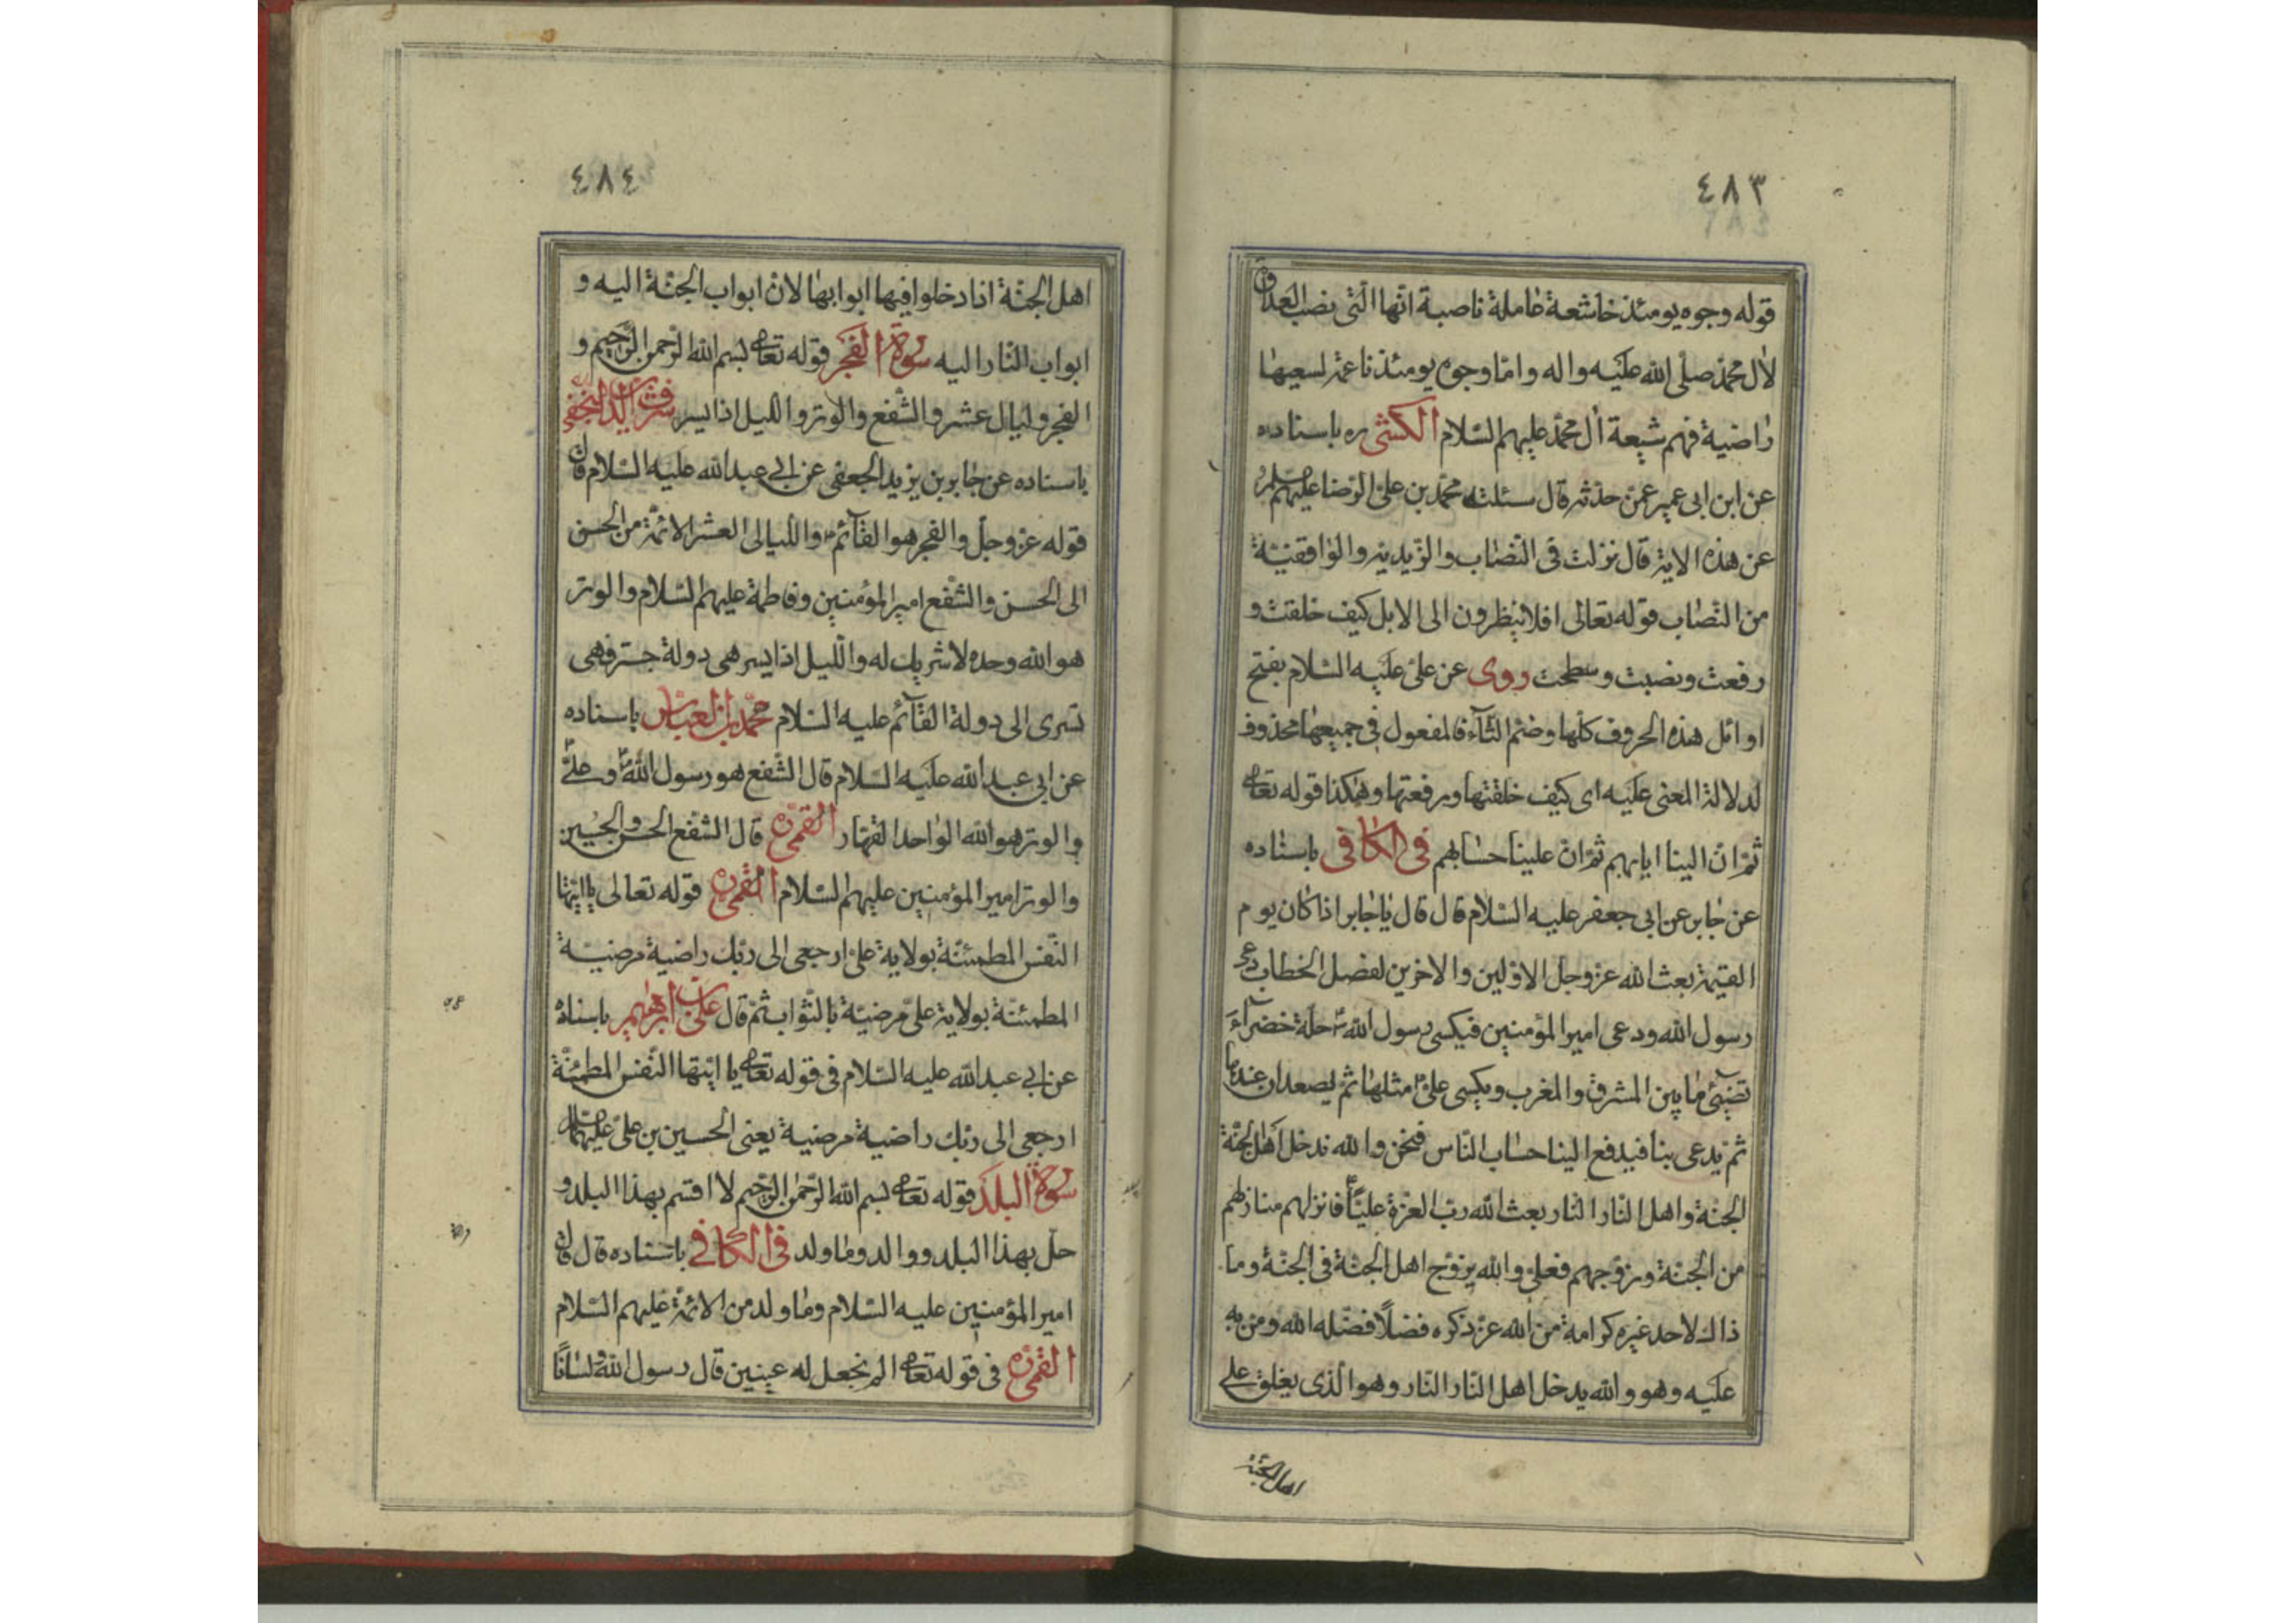 ٤٨٣
قوله وجوه يومئذ خاشعة عاملة ناصبة انّها الّتى نصب العداوة
لاٰل محمّد صلّى الله عليه واله وامّا وجوه يومئذ ناعمة لسعيها
راضية فهم شيعة اٰل محمّد عليهم السّلام الكشّى ره باسناده
عن ابن ابى عمير عمّن حدّثه قال سئلت محمّد بن علىّ الرّضا عليهم
عن هذه الاية قال نزلت فى النّصّاب والزّيديّة والواقفيّة
من النّصّاب قوله تعالى افلا ينظرون الى الابل كيف خلقت و
رفعت ونصبت وسطحت روى عن علىّ عليه السّلام بفتح
اوائل هذه الحروف كلّها وضمّ التّآء فالمفعول فى جميعها محذوف
لدلالة المعنى عليه اى كيف خلقتها ورفعتها وهكذا قوله تعا
ثمّ انّ الينا ايابهم ثمّ انّ علينا حسابهم فى الكافى باسناده
عن جابر عن ابى جعفر عليه السّلام قال قال يا جابر اذا كان يوم
القيمة بعث الله عزّ وجلّ الاوّلين والاخرين لفصل الخطاب دعى
رسول الله ودعى امير المؤمنين فيكسى رسول الله ص حلّة خضرآء
تضيئ ما بين المشرق والمغرب ويكسى علىّ مثلها ثمّ يصعدان عندها
ثمّ يدعى بنا فيدفع الينا حساب النّاس فنحن والله ندخل اهل الجنّة
الجنّة واهل النّار النّار بعث الله ربّ العزّة عليّاً فانزلهم منازلهم
من الجنّة وزوّجهم فعلىّ والله يزوّج اهل الجنّة فى الجنّة وما
ذاك لاحد غيره كرامة من الله عزّ ذكره فضلاً فضّله الله ومن به
عليه وهو والله يدخل اهل النّار النّار وهو الّذى يغلق على
اهل الجنّة
٤٨٤
اهل الجنّة اذا دخلوا فيها ابوابها لانّ ابواب الجنّة اليه و
ابواب النّار اليه سورة الفجر قوله تعا بسم الله الرّحمن الرّحيم و
الفجر وليال عشر والشّفع والوتر واللّيل اذا يسر شرف الدّين النجفى
باسناده عن جابر بن يزيد الجعفى عن ابى عبد الله عليه السّلام قال
قوله عزّ وجلّ والفجر هو القآئم واللّيالى العشر الائمّة من الحسن
الى الحسن والشّفع امير المؤمنين وفاطمة عليهم السّلام والوتر
هو الله وحده لا شريك له واللّيل اذا يسر هى دولة حبتر فهى
تسرى الى دولة القآئم عليه السّلام محمّد بن العبّاس باسناده
عن ابى عبد الله عليه السّلام قال الشّفع هو رسول الله ص وعلىّ
والوتر هو الله الواحد القهّار القمّى ره قال الشّفع الحسن والحسين
والوتر امير المؤمنين عليهم السّلام القمّى ره قوله تعالى يا ايّتها
النّفس المطمئنّة بولاية علىّ ارجعى الى ربّك راضية مرضيّة
المطمئنّة بولاية علىّ مرضيّة بالثّواب ثمّ قال علىّ بن ابراهيم باسناده
عن ابى عبد الله عليه السّلام فى قوله تعا يا ايّتها النّفس المطمئنّة
ارجعى الى ربّك راضية مرضيّة يعنى الحسين بن علىّ عليهما
سورة البلد قوله تعا بسم الله الرّحمن الرّحيم لا اقسم بهذا البلد و
حلّ بهذا البلد ووالد وما ولد فى الكافى باسناده قال قال
امير المؤمنين عليه السّلام وما ولد من الائمّة عليهم السّلام
القمّى ره فى قوله تعا الم نجعل له عينين قال رسول الله ولسانًا